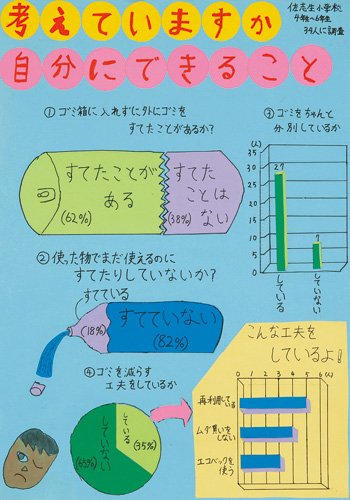 考えていますか
自分にできること
佐志生小学校
4年生~6年生
34人に調査
①ゴミ箱に入れずに外にゴミを
すてたことがあるか?
すてたことが
ある
(62%)
すてた
ことは
ない
(38%)
②使った物でまだ使えるのに
すてたりしていないか?
すてている
(18%)
すてていない
(82%)
③ゴミをちゃんと
分別しているか
(人)
35
30
25
20
15
10
5
0
27
7
している
していない
④ゴミを減らす
工夫をしているか
している
(35%)
していない
(65%)
こんな工夫を
しているよ!
0 1 2 3 4 5 6(人)
再利用している
ムダ買いを
しない
エコバックを
使う